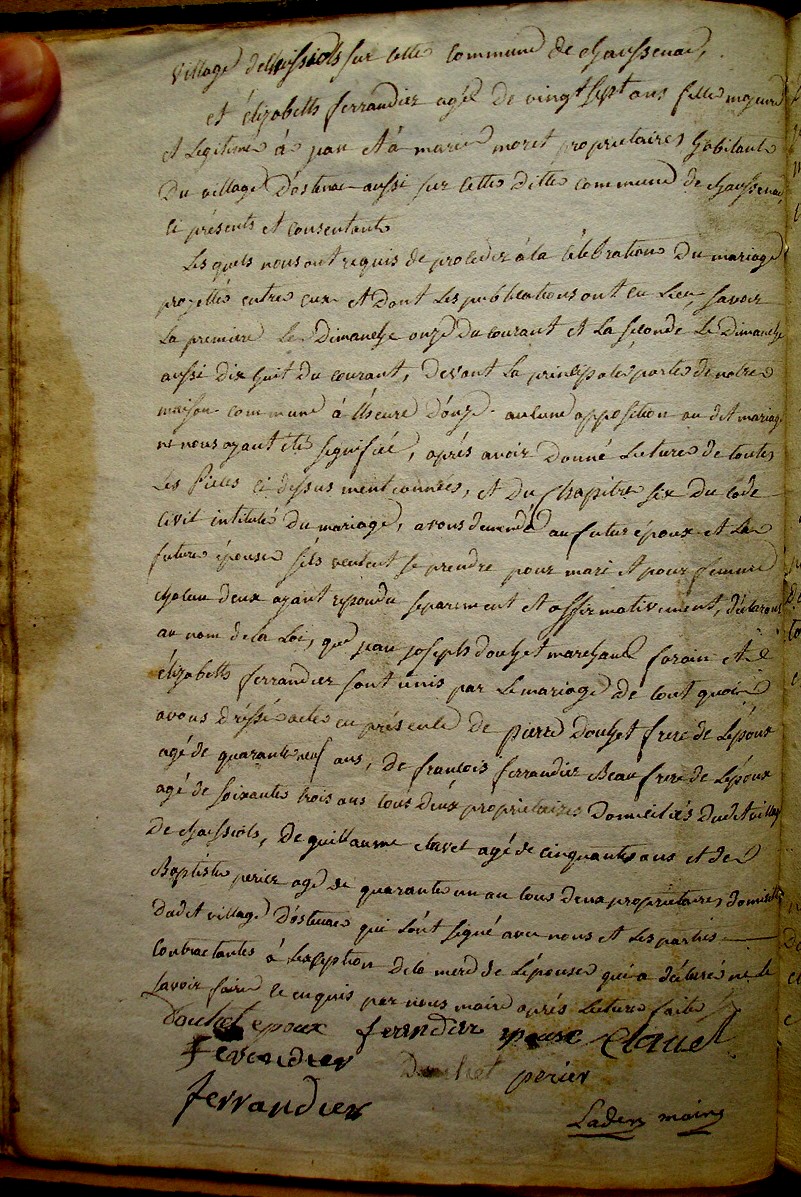 village de chassiols sur cette commune de chaussenac,
et élizabeth ferrandier agée de vingt sept ans fille majeure
et Legitime à jean et à marie moret proprietaires habitants
Du village d'ostenac aussi sur cette ditte commune de chaussenac,
ci présents et consentants
Lesquels nous ont requis de proceder à la célébration Du mariage
projetté entre eux et Dont Les publications ont eu Lieu savoir
La premiere Le Dimanche onze Du courant et La seconde Le Dimanche
aussi dix huit Du courant, devant La principale porte de notre
maison commune à l'heure d'onze. aucune opposition au dit mariage
ne nous ayant été signifiée, aprés avoir Donné Lecture de toutes
Les Pieces ci dessus mentionnées, et Du Chapitre six Du Code
Civil intitulé du mariage, avons demandé au futur époux et La
future épouse s'ils veulent se prendre pour mari et pour femme
chacun deux ayant repondu separement et affirmativement, déclarons
au nom de la Loi, que jean joseph douhet marchand forain et
élizabeth ferrandier sont unis par Le mariage de tout quoi
avons dréssé acte en présence de pierre Douhet frere de L'époux
agé de quarante neuf ans, De francois ferrandier Beau frere de L'époux
agé de soixante trois ans tous deux proprietaires Domiciliés Dudit village
De chassiols, De guillaume clavet agé de cinquante ans et de
Baptiste perier agé de quarante un an tous deux proprietaires domiciliés
Dudit village D'ostenac qui L'ont signé avec nous et Les parties
Contractantes à L'exception de la mere de L'épouse qui a déclaré ne le
savoir faire de ce enquis par nous maire aprés Lecture faite
Douhet epoux ferrandier epouse Clavet
Ferandier Douhet perier
ferrandier
Laden maire